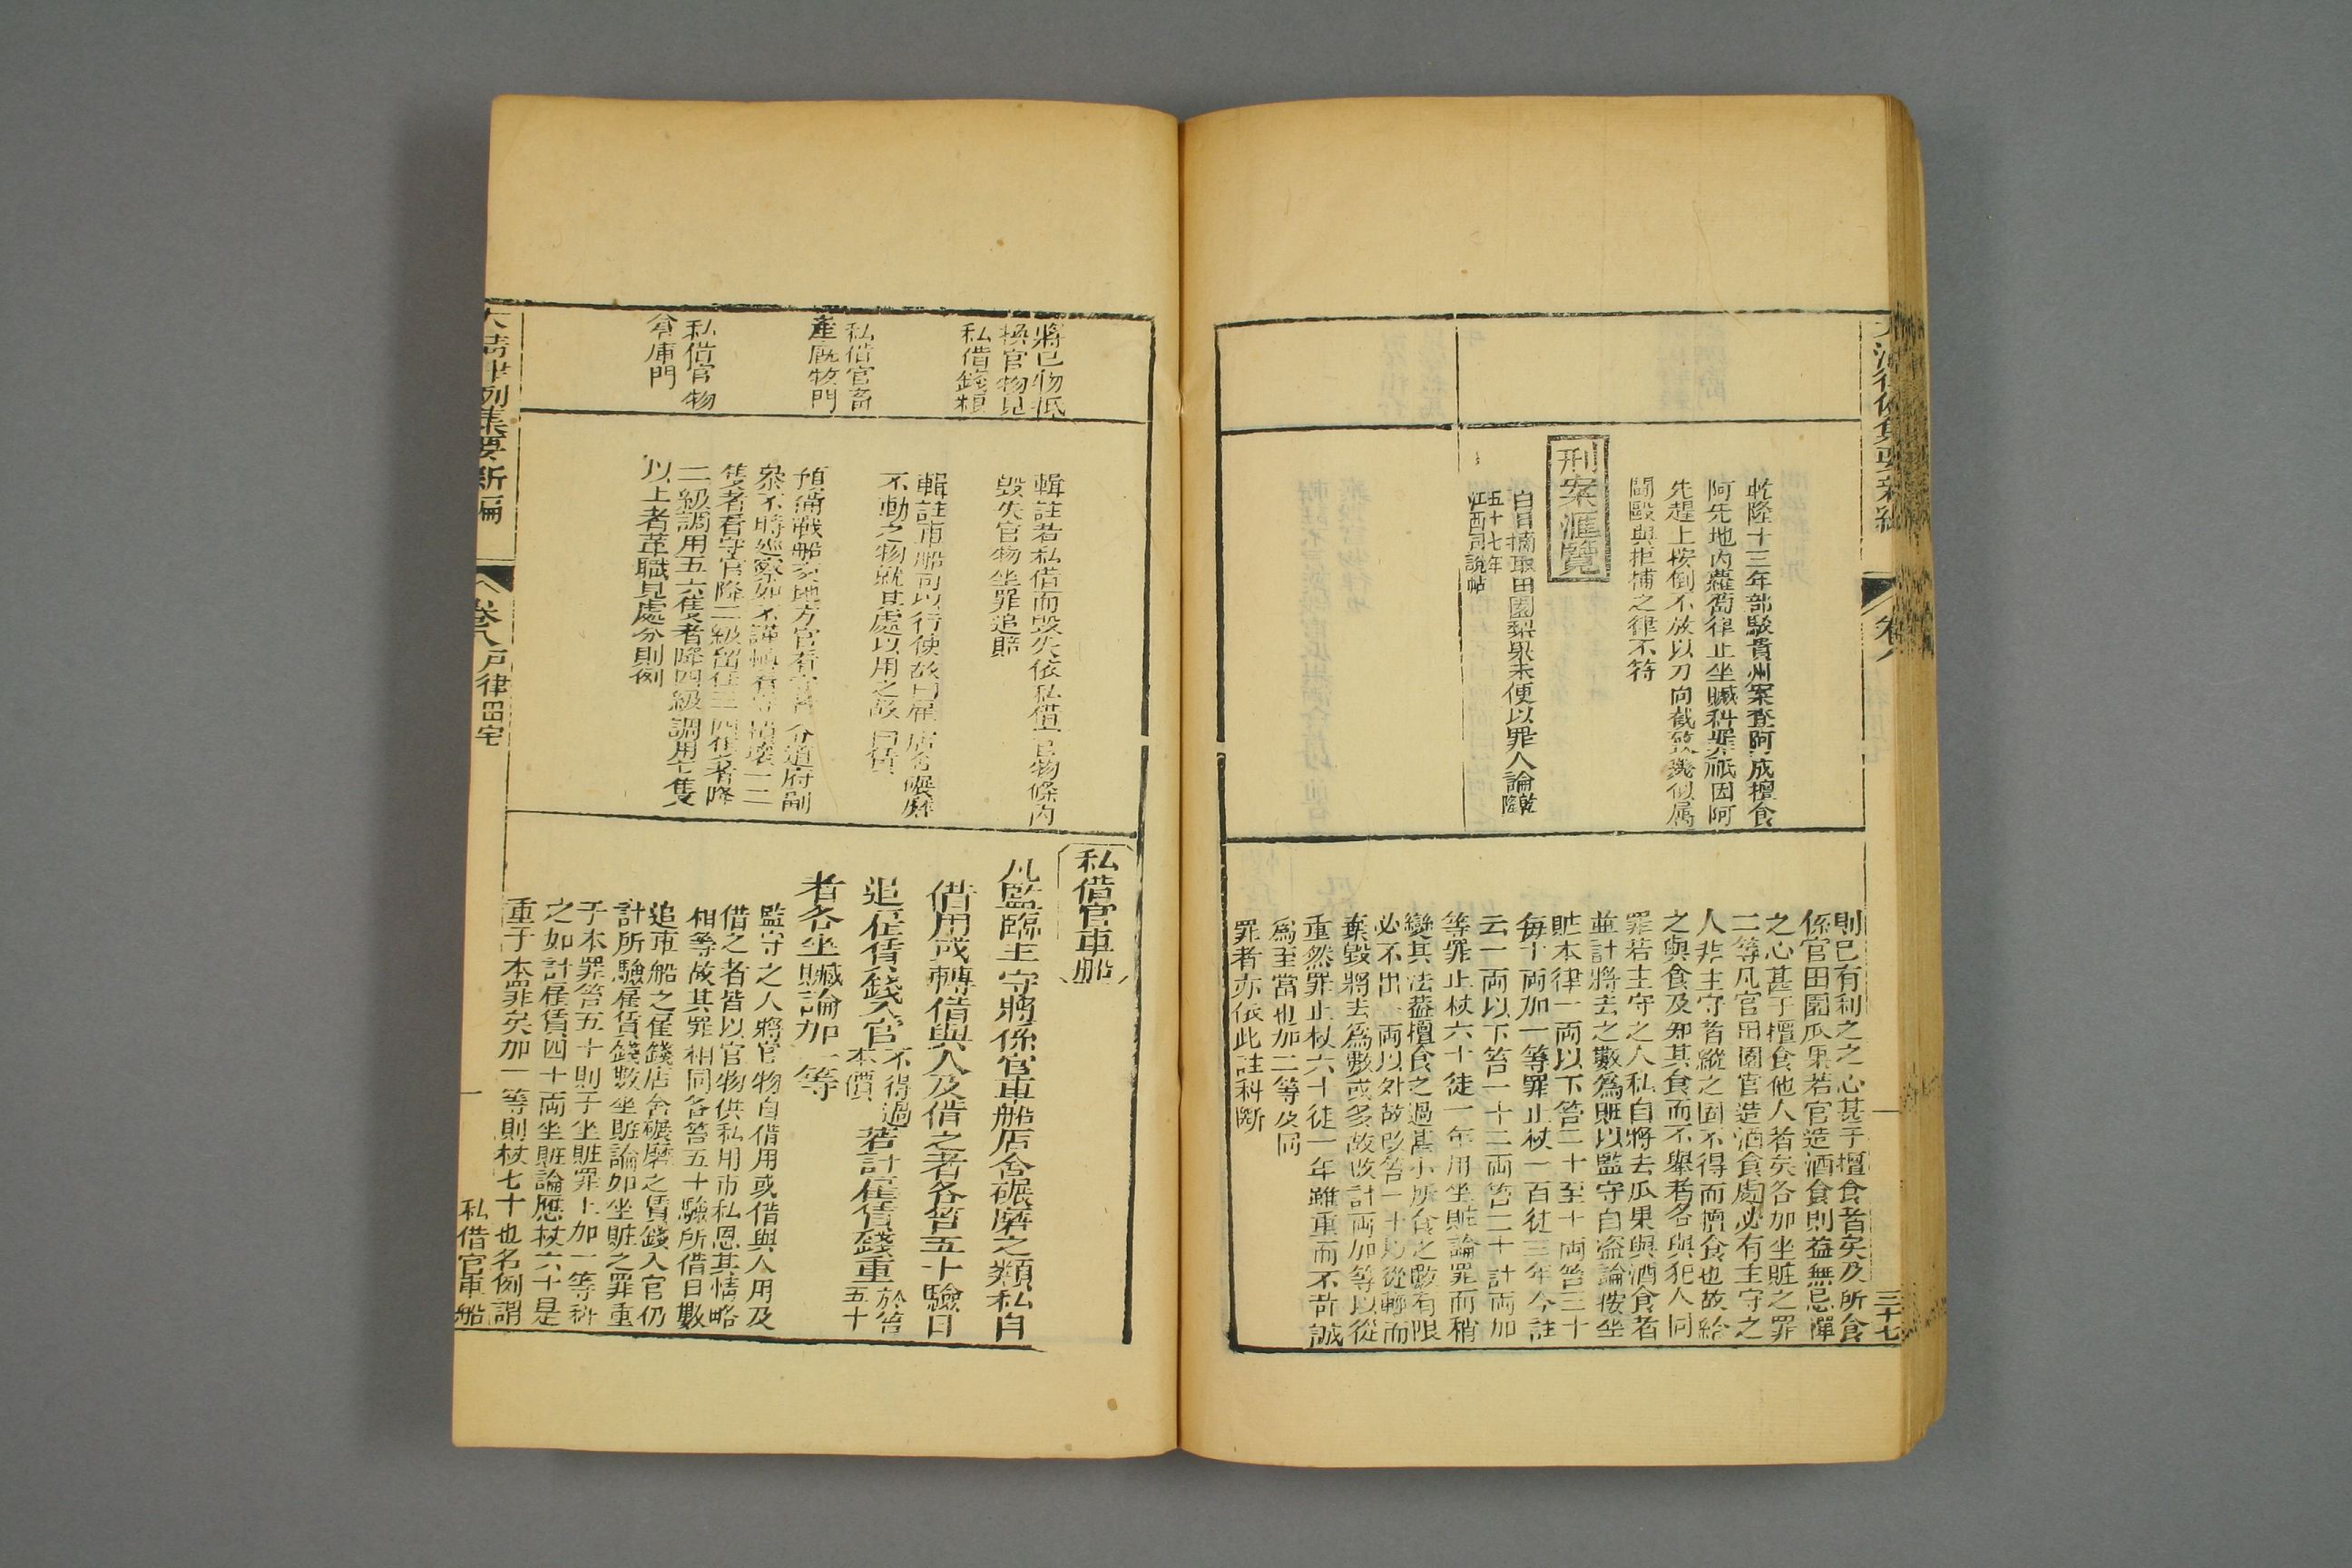 卷八
三十七
乾隆十三年部駁貴州案查阿成擅食
阿先地內蘿蔔律止坐贓科罪祇因阿
先趕上按倒不放以刀向戳致斃似属
鬬毆與拒捕之律不符
刑案滙覽
白日摘取田園梨果未便以罪人論乾隆
五十七年
江西司說帖
則已有利之之心甚于擅食者矣及所食
係官田園瓜果若官造酒食則益無忌憚
之心甚于擅食他人者矣各加坐賍之罪
二等凡官田園官造酒食處必有主守之
人非主守者縱之固不得而擅食也故給
之與食及知其食而不舉者各與犯人同
罪若主守之人私自將去瓜果與酒食者
並計將去之數爲賍以監守自盗論按坐
賍本律一両以下笞二十至十両笞三十
每十両加一等罪止杖一百徒三年今註
云一両以下笞一十二両笞二十計両加
等罪止杖六十徒一年用坐賍論罪而稍
變其法葢擅食之過甚小所食之數有限
必不出一両以外故改笞一十以從輕而
棄毀將去爲數或多故改計両加等以從
重然罪止杖六十徒一年雖重而不苛誠
爲至當也加二等及同
罪者亦依此註科斷
將已物抵
換官物見
私借錢糧
私借官畜
產厩牧門
私借官物
倉庫門
輯註若私借而毀失依私借官物條內
毀失官物坐罪追賠
輯註車船可以行使故曰雇店舍碾磨
不動之物就其處以用之故曰賃
預俻戰船該地方官看守營分道府副
叅不時巡察如不謹愼看守損壞一二
隻者看守官降二級留任三四隻者降
二級調用五六隻者降四級調用七隻
以上者革職見處分則例
私借官車船
凡監臨主守將係官車船店舍碾磨之類私自
借用或轉借與人及借之者各笞五十驗日
追雇賃錢入官
不得過
本價
若計雇賃錢重
於笞
五十
者各坐贓論加一等
監守之人將官物自借用或借與人用及
借之者皆以官物供私用市私恩其情略
相等故其罪相同各笞五十驗所借日數
追車船之雇錢店舍碾磨之賃錢入官仍
計所驗雇賃錢數坐賍論如坐賍之罪重
于本罪笞五十則于坐賍罪上加一等科
之如計雇賃四十両坐賍論應杖六十是
重于本罪矣加一等則杖七十也名例謂
大清律例集要新編
卷八户律田宅
私借官車船